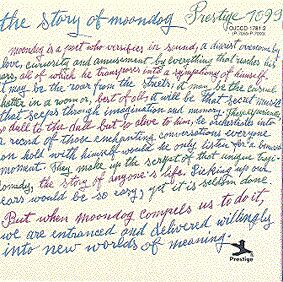 the story of moondog Prestige 1099
OJCCD 1741-2
(P-7099)
moondog is a poet who versifies in sound, a diarist overcome by
love, curiosity and amusement by everything that reaches his
ears, all of which he transposes into a symphony of himself.
it may be the roar from the streets, it may be the carnal
chatter in a womb or, best of all, it will be that secret music
that seeps through imagination and memory. The pleasantries
so dull to the dull but so alive to him, he orchestrates into
a record of those enchanting conversations everyone
can hold with himself would he only listen for a brave
moment. They make up the script of that unique tragi-
comedy, the story of anyone's life. Picking up our
ears would be so easy, yet it is seldom done.
But when Moondog compels us to do it,
we are entranced and delivered willingly
into new worlds of meaning.
Prestige